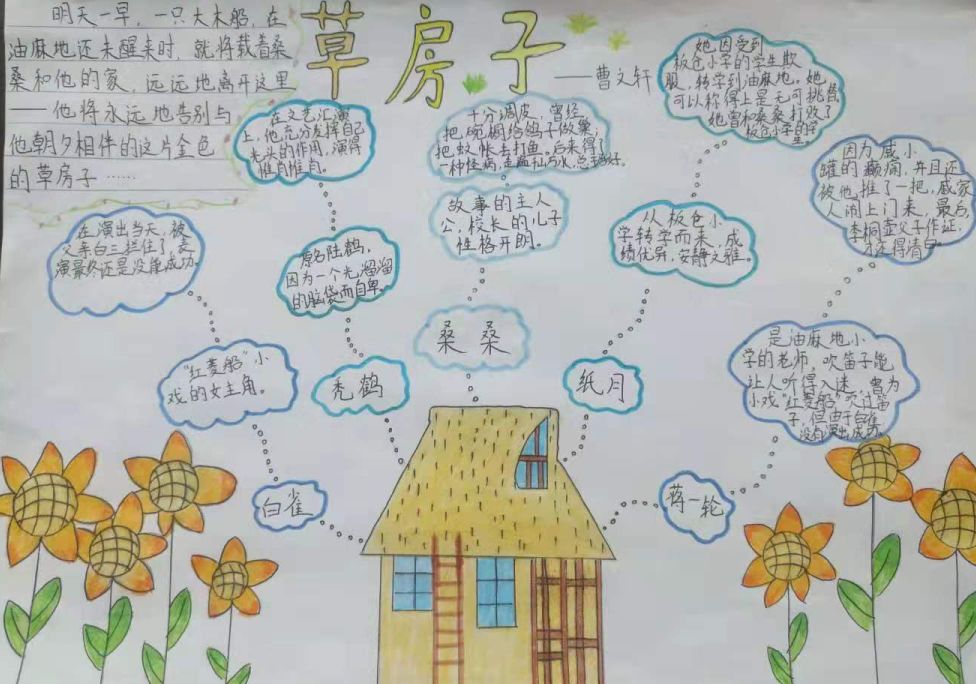 草房子
——曹文轩
明天一早，一只大木船，在
油麻地还未醒来时，就将载着桑
桑和他的家，远远地离开这里
——他将永远地告别与
他朝夕相伴的这片金色
的草房子……
在文艺汇演
上，他充分发挥自己
光头的作用，演得
惟肖惟肖。
十分调皮，曾经
把碗橱给鸽子做巢，
把蚊帐去打鱼。后来得了
一种怪病，走遍仙山水，总
好。
她因受到
板仓小学的学生欺
服，转学到油麻地。她
可以称得上是无可挑剔。
她曾和桑桑打败了
板仓小学的学
因为戚小
罐的癫痫，并且还
被他推了一把，戚家
人闹上门来，最后，
李桐壶父子作证，
才还得清白。
在演出当天，被
父亲白三拦住了，表
演最终还是没能成功。
原名陆鹤，
因为一个光溜溜
的脑袋而自卑。
故事的主人
公，校长的儿子
性格开朗。
从板仓小
学转学而来，成
绩优异，安静文雅。
“红菱船”小
戏的女主角。
秃鹤
桑桑
纸月
是油麻地小
学的老师，吹笛子能
让人听得入迷，曾为
小戏“红菱船”吹过笛
子，但由于白雀
没有演出成功。
白雀
蒋一轮